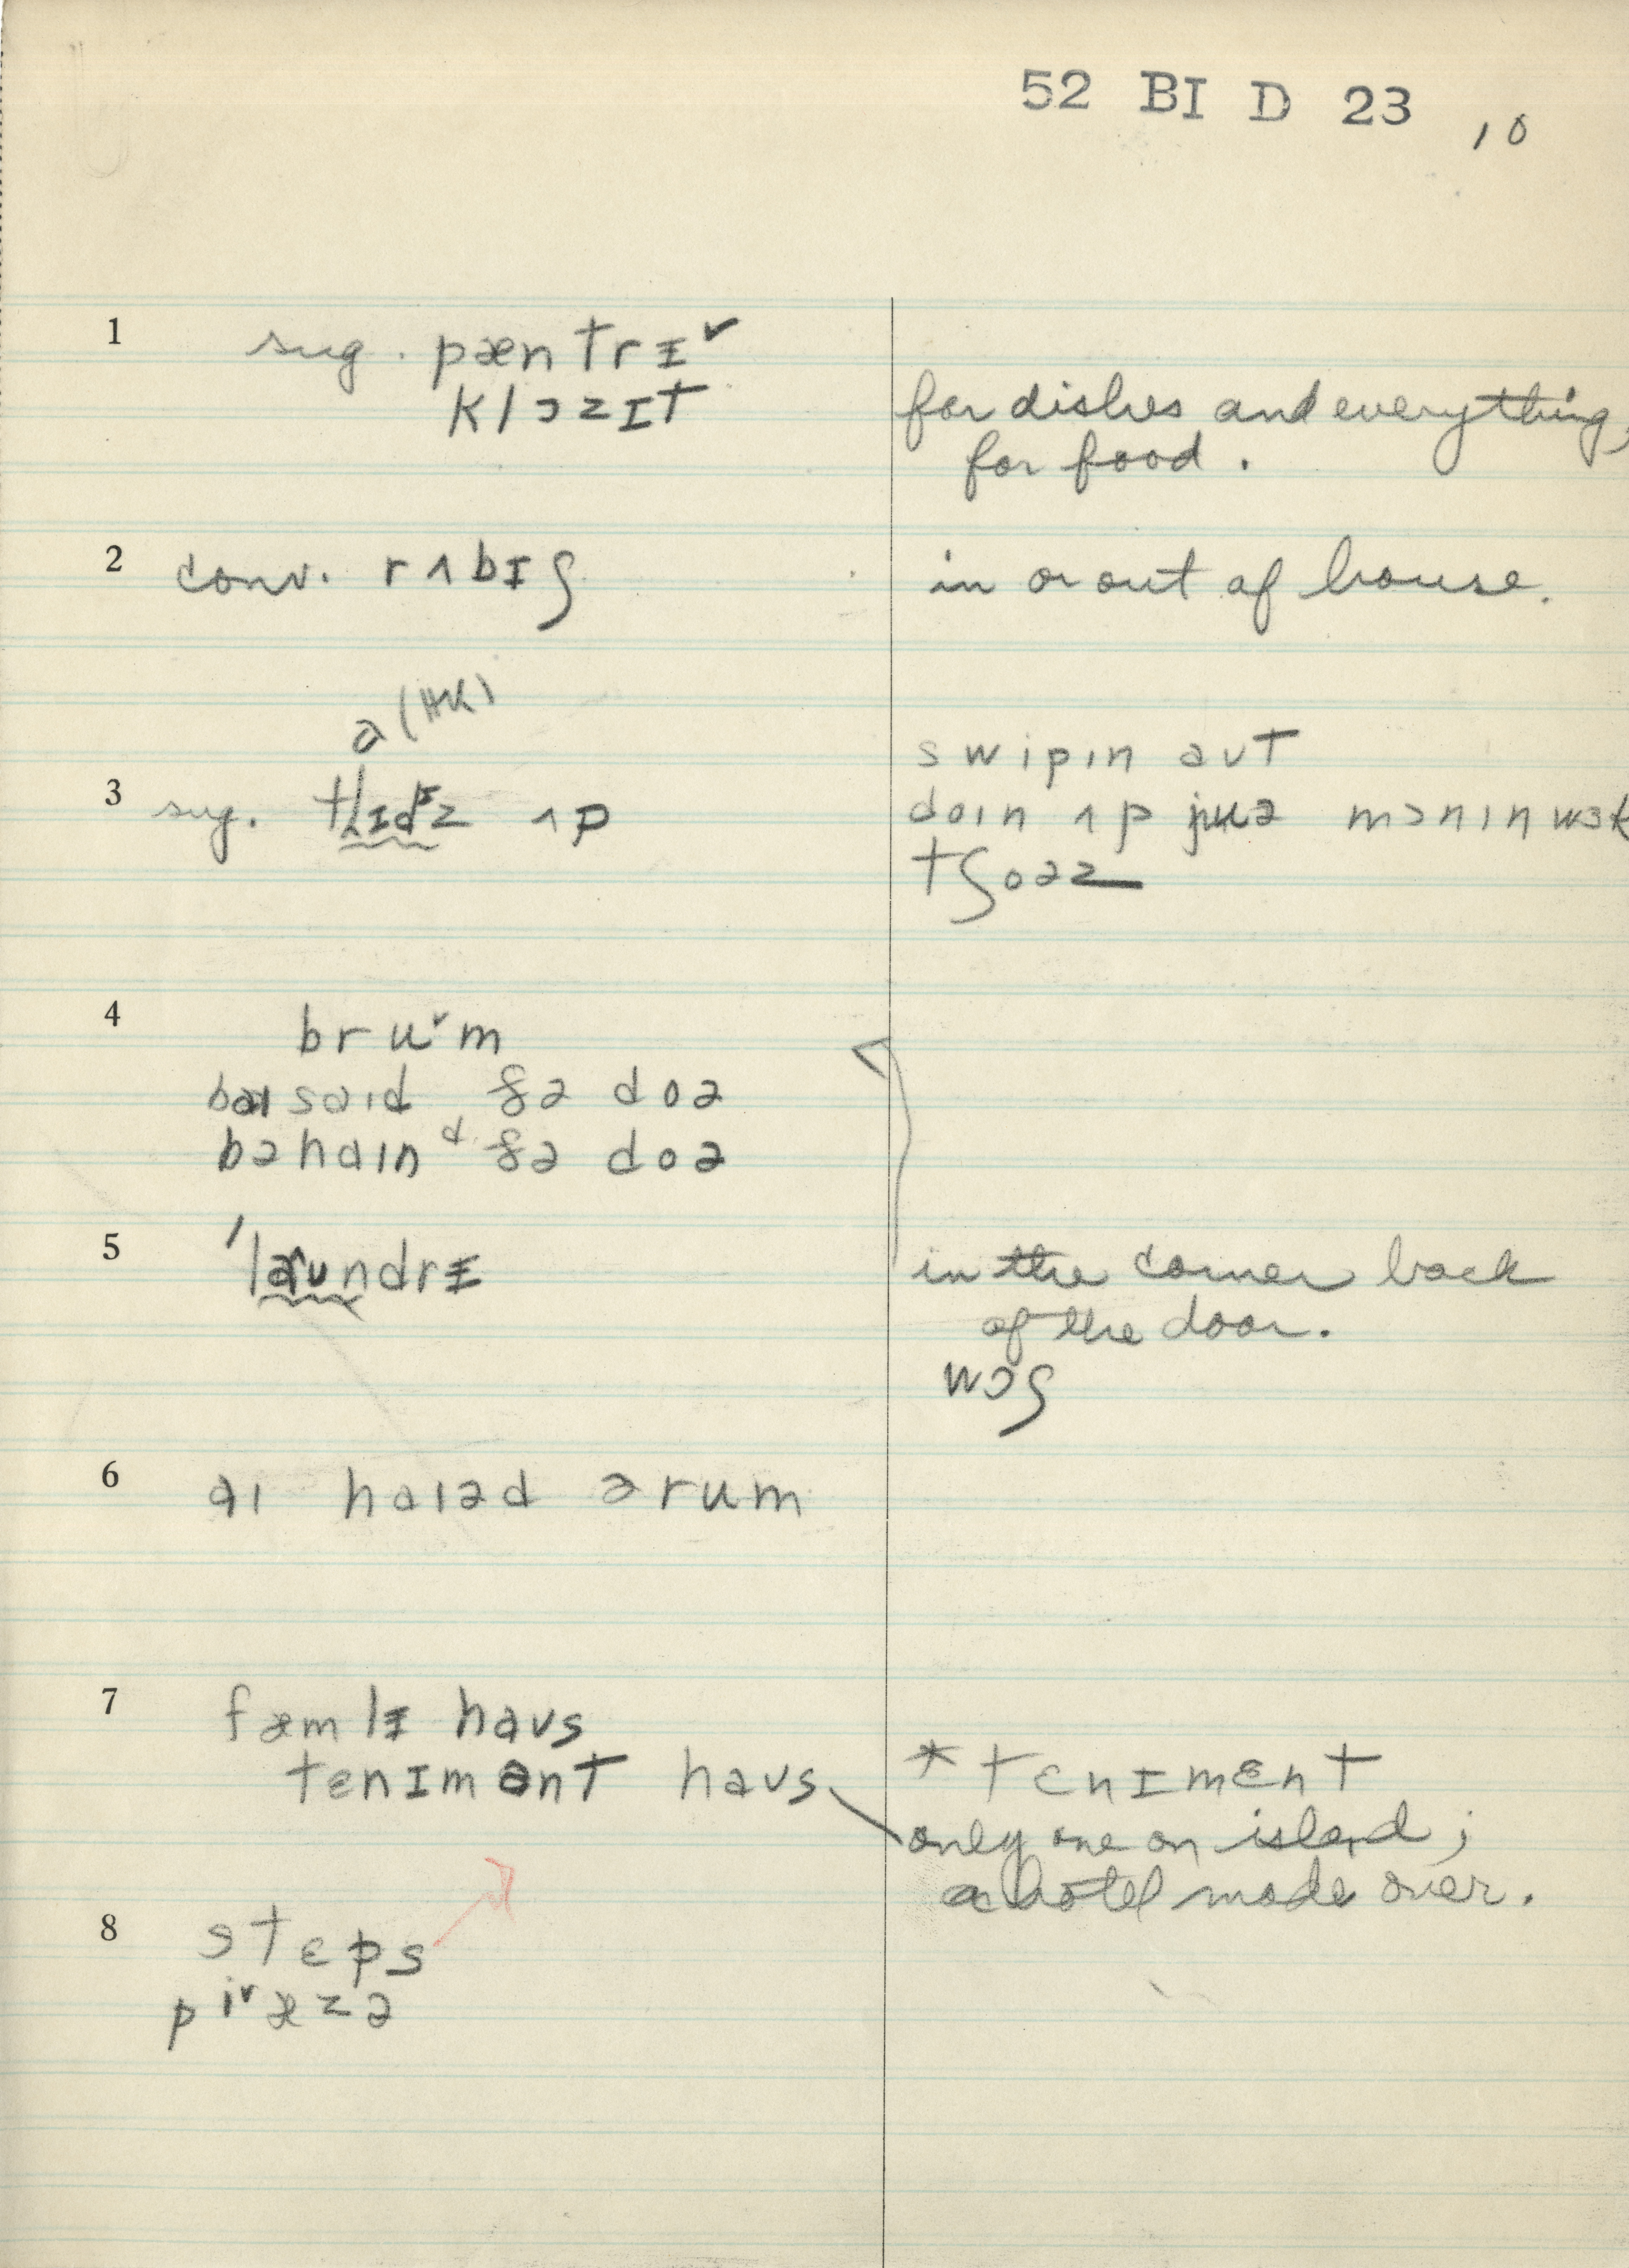 52 BI D 23
10
1 sug. pæntrɪ˅
klɔzɪt
for dishes and everything,
for food.
2 conv. rʌbɪʃ
in or out of house.
a (HK)
3 sug. ʌp
swipɪn aʊt
doɪn ʌp jʊə mɔnɪn wɜk
tʃoəz
4 bru˅m
baɪsaɪd ðə doə
bəhaɪnᵈ ðə doə
5 ˈlaʊndrɪ
in the corner back
of the door.
wɔʃ
6 aɪ haɪəd ə rum
7 fæmlɪ haʊs
tenɪmənt haʊs
* tɛnɪmɛnt
only one on island;
a hotel made over.
8 stɛps
pi˅æzə